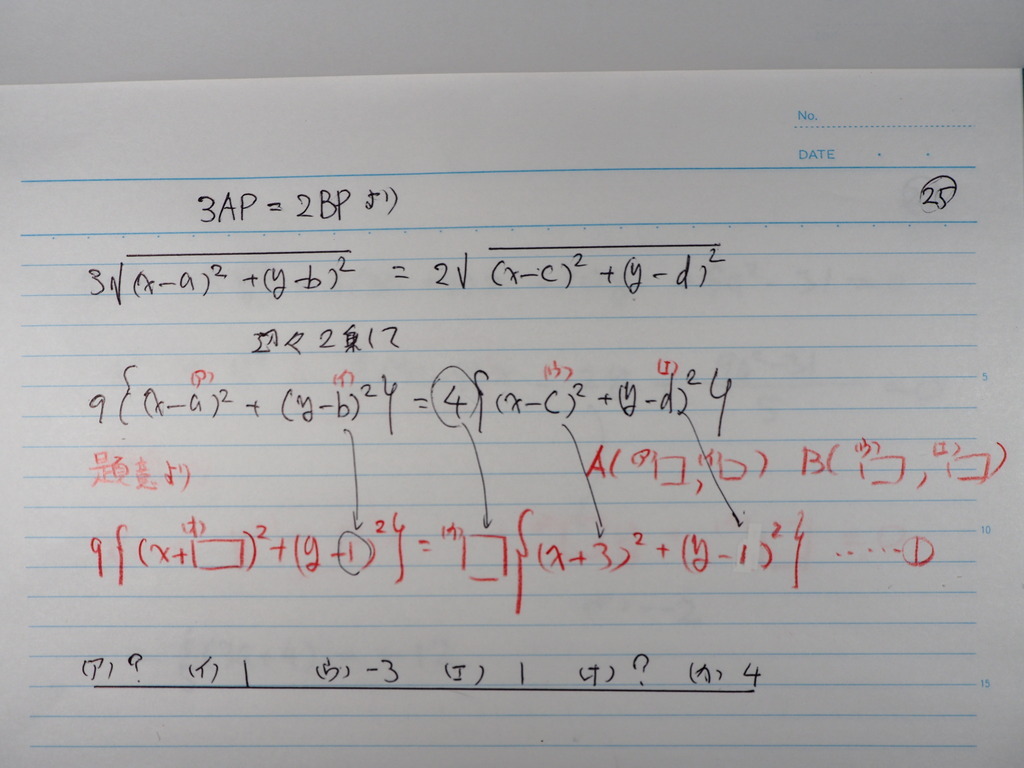 No.
DATE
25
3AP = 2BP より
3√(x-a)² + (y-b)² = 2√(x-c)² + (y-d)²
辺々2乗して
(ア) (イ) (ウ) (エ)
9{(x-a)² + (y-b)²} = 4{(x-c)² + (y-d)²}
5
題意より A((ア)□, (イ)□) B((ウ)□, (エ)□)
10
9{(x+(オ)□)² + (y-1)²} = (カ)□{(x+3)² + (y-1)²} ……①
(ア) ? (イ) 1 (ウ) -3 (エ) 1 (オ) ? (カ) 4
15